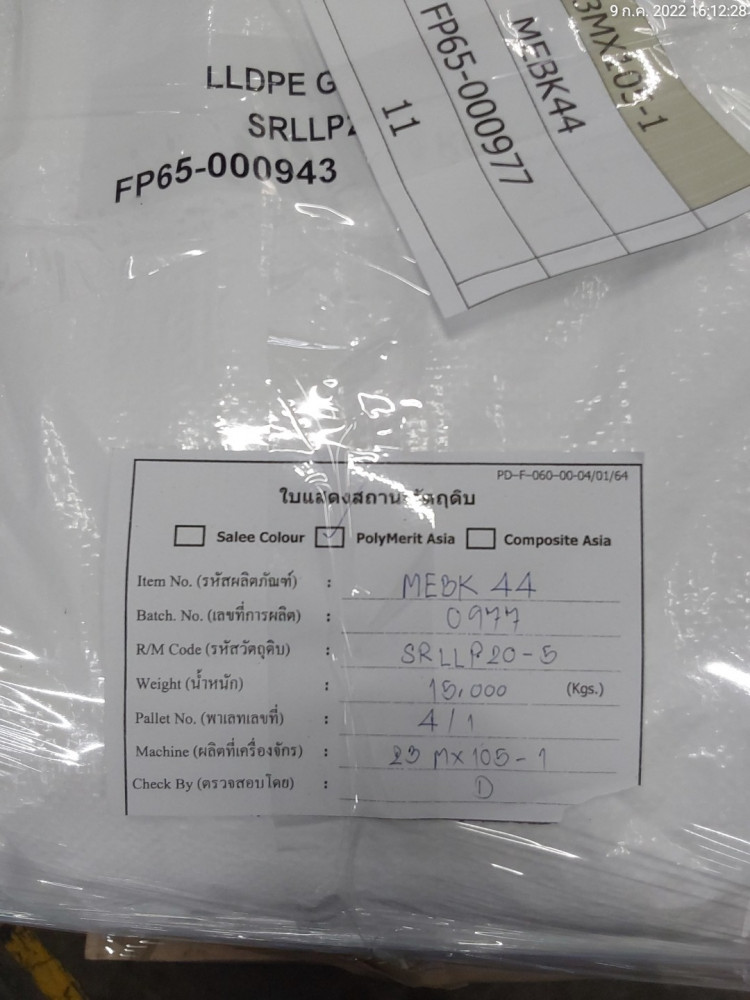 9 ก.ค. 2022 16:12:28
3MX105-1
MEBK44
FP65-000977
11
LLDPE G
SRLLP2
FP65-000943
PD-F-060-00-04/01/64
ใบแสดงสถานะวัตถุดิบ
Salee Colour PolyMerit Asia Composite Asia
Item No. (รหัสผลิตภัณฑ์) : MEBK 44
Batch. No. (เลขที่การผลิต) : 0977
R/M Code (รหัสวัตถุดิบ) : SRLLP20-5
Weight (น้ำหนัก) : 15.000 (Kgs.)
Pallet No. (พาเลทเลขที่) : 4/1
Machine (ผลิตที่เครื่องจักร) : 23 MX105-1
Check By (ตรวจสอบโดย) : D